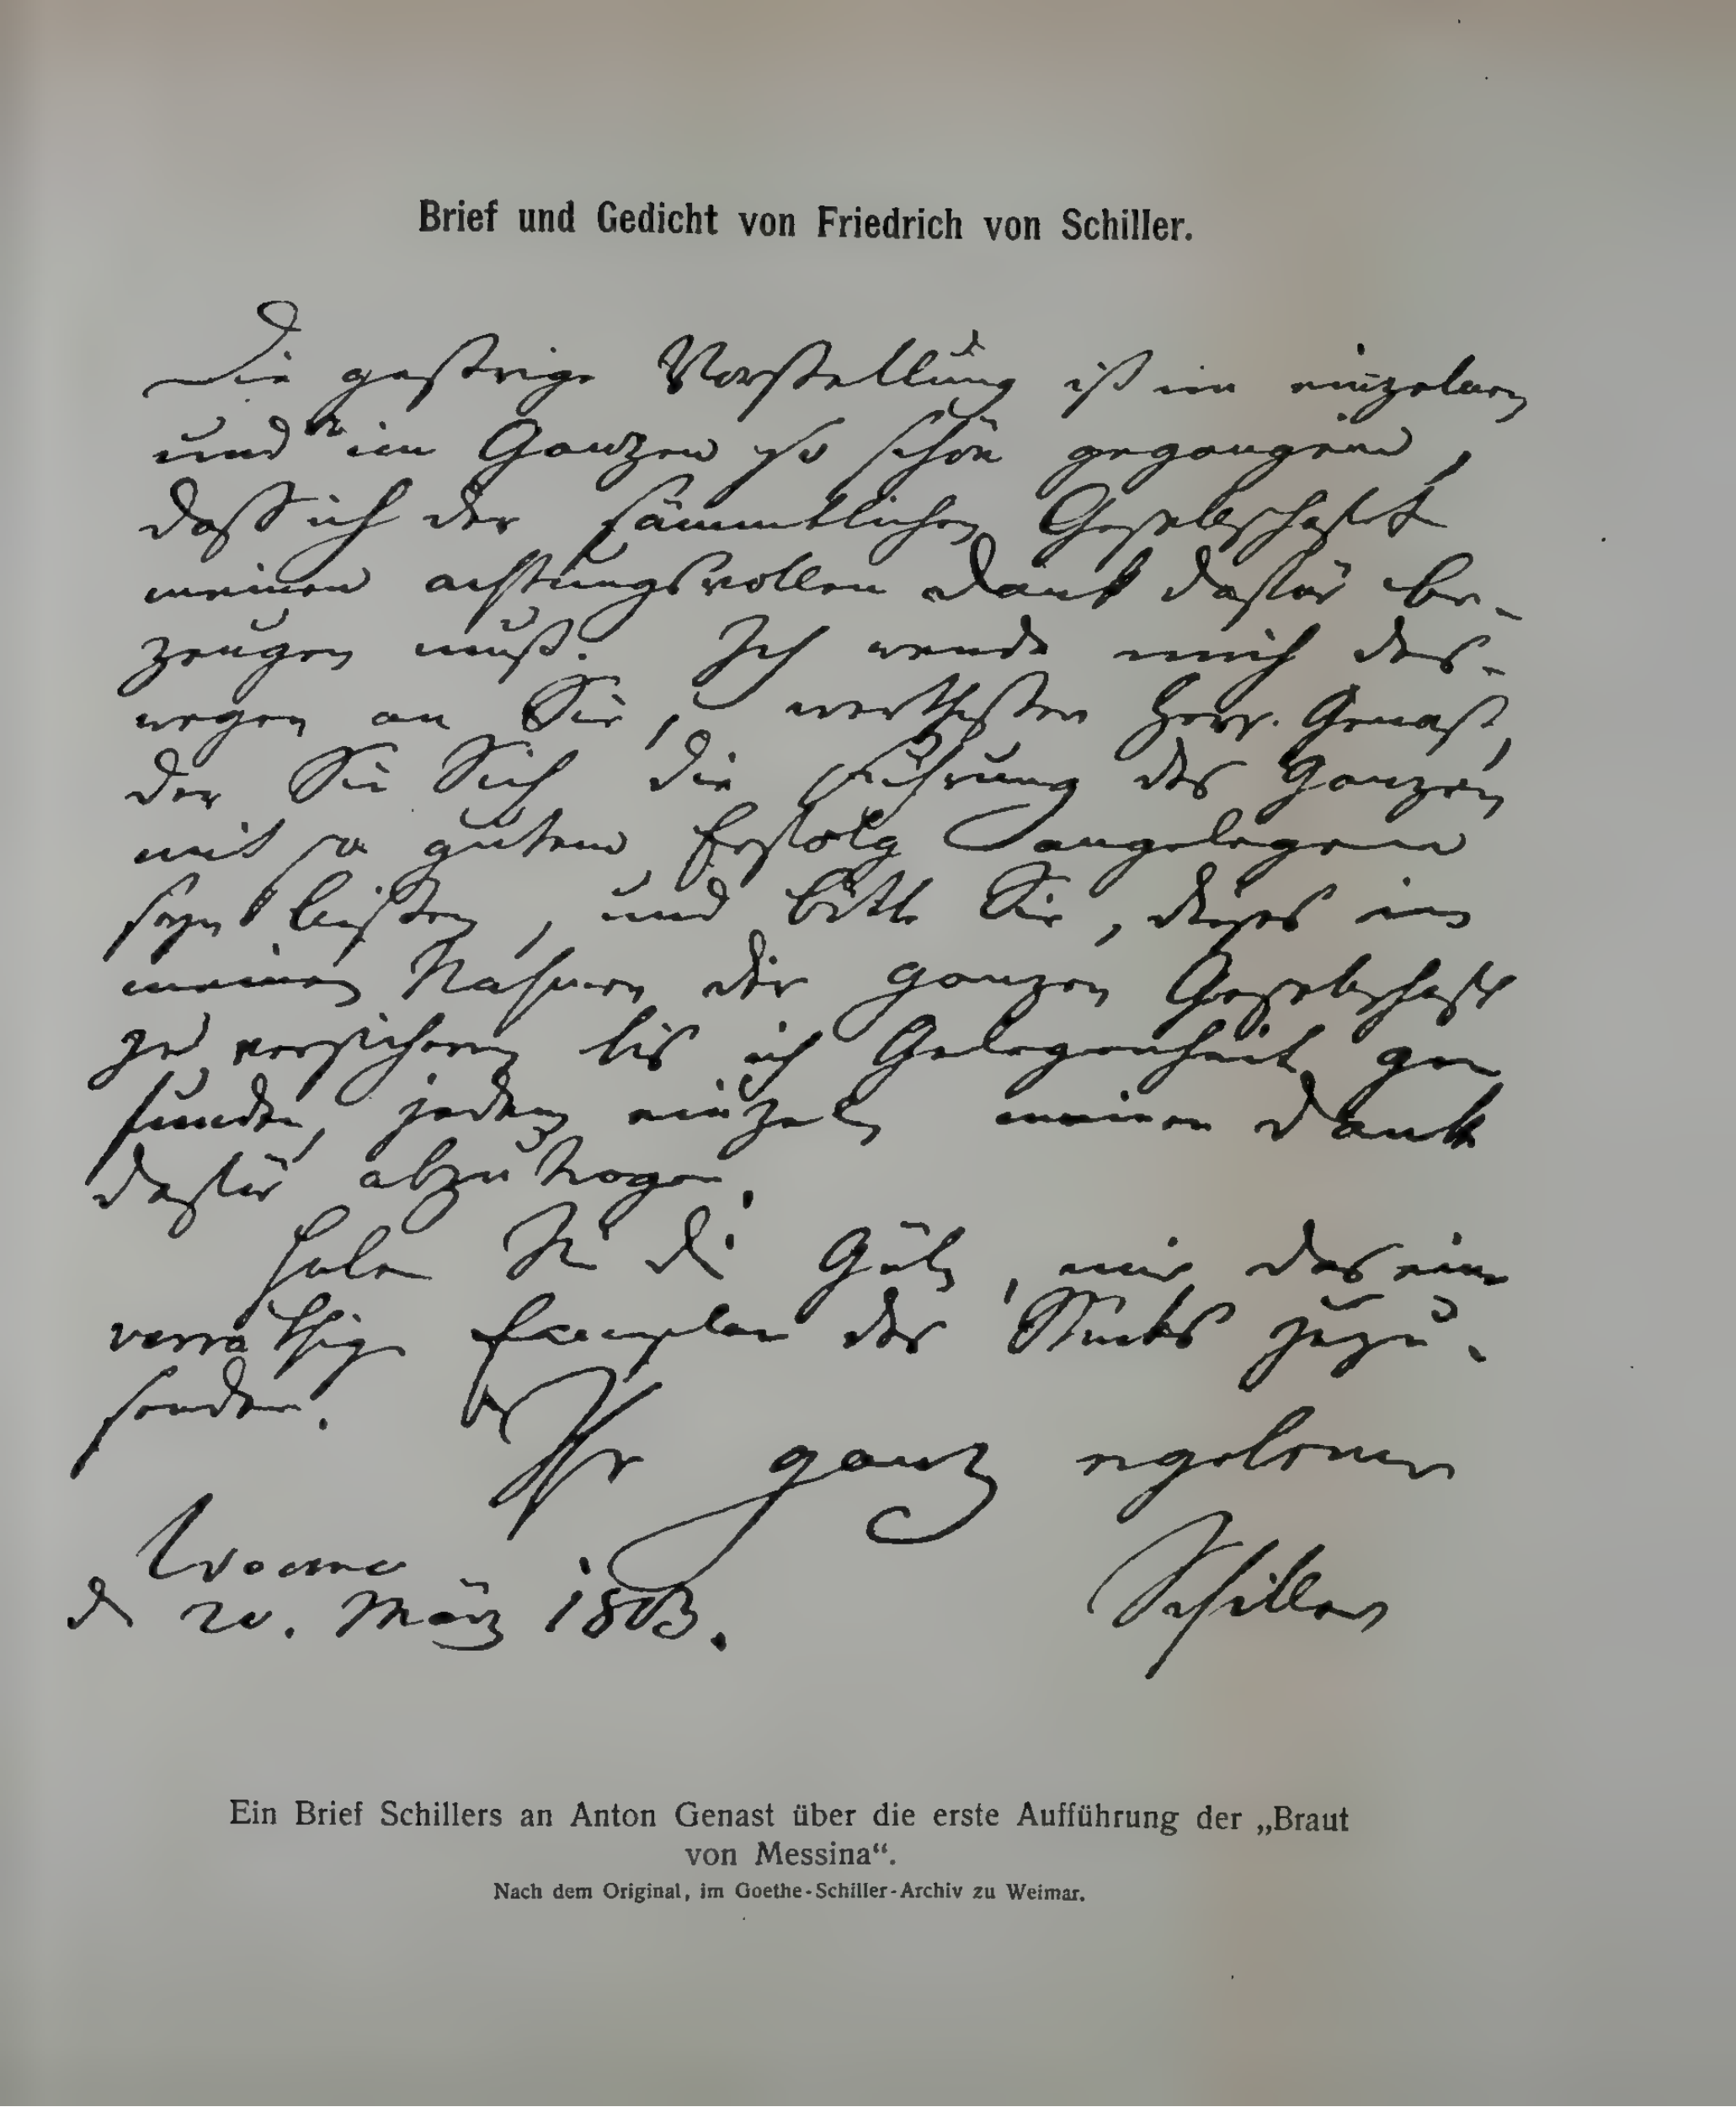 Brief und Gedicht von Friedrich von Schiller.
Die gestrige Vorstellung ist im einzelnen
und im Ganzen so schön gegangen,
daß ich der sämmtlichen Gesellschaft
meinen achtungsvollen Dank dafür be-
zeugen muß. Ich wende mich des-
wegen an Sie, werthester Herr Genast,
der Sie Sich die Führung des Ganzen
mit so gutem Erfolg angelegen
seyn ließen, und bitte Sie, dieses in
meinem Nahmen der ganzen Gesellschaft
zu versichern bis ich Gelegenheit ge
funden, jedem einzeln meinen Dank
dafür abzutragen.
Haben Sie die Güte, mir das eine
vorräthige Exemplar des Stücks zuzu-
senden.
Ihr ganz ergebener
Schiller
Weimar
d 20. März 1803.
Ein Brief Schillers an Anton Genast über die erste Aufführung der „Braut
von Messina“.
Nach dem Original, im Goethe-Schiller-Archiv zu Weimar.